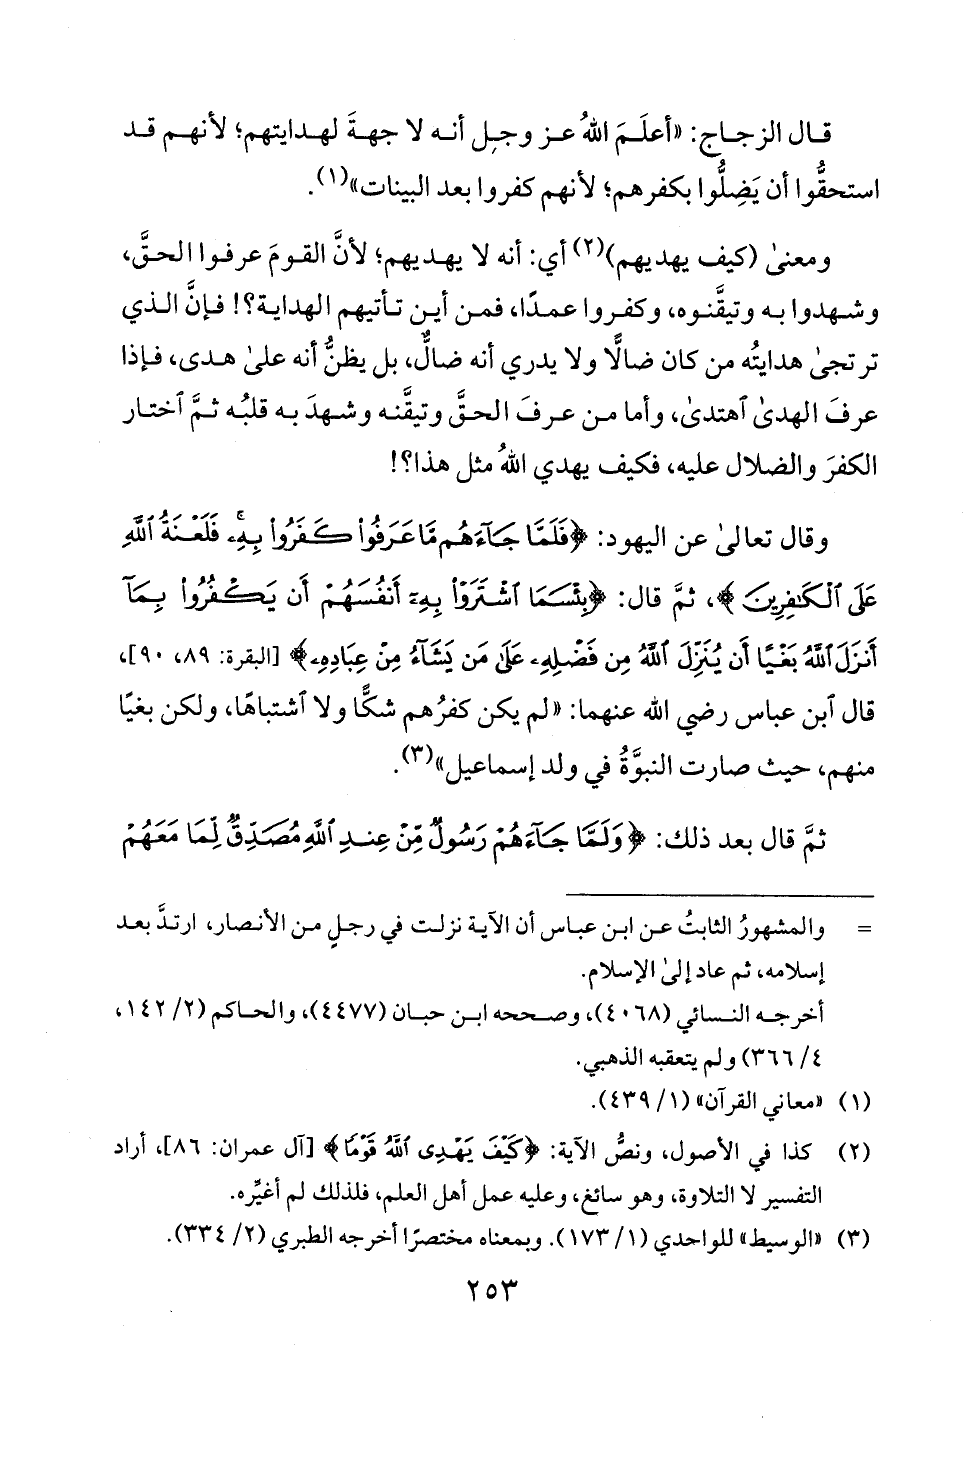 قال الزجاج: «أعلَمَ اللهُ عز وجل أنه لا جهةَ لهدايتهم؛ لأنهم قد
استحقُّوا أن يَضِلُّوا بكفرهم؛ لأنهم كفروا بعد البينات»(١).
ومعنىٰ (كيف يهديهم)(٢) أي: أنه لا يهديهم؛ لأنَّ القومَ عرفوا الحقَّ،
وشهدوا به وتيقَّنوه، وكفروا عمدًا، فمن أين تأتيهم الهداية؟! فإنَّ الذي
ترتجىٰ هدايتُه من كان ضالًّا ولا يدري أنه ضالٌّ، بل يظنُّ أنه علىٰ هدى، فإذا
عرفَ الهدىٰ ٱهتدىٰ، وأما من عرفَ الحقَّ وتيقَّنه وشهدَ به قلبُه ثمَّ ٱختار
الكفرَ والضلال عليه، فكيف يهدي اللهُ مثل هذا؟!
وقال تعالىٰ عن اليهود: ﴿فَلَمَّا جَآءَهُم مَّا عَرَفُوا۟ كَفَرُوا۟ بِهِۦۚ فَلَعْنَةُ ٱللَّهِ
عَلَى ٱلْكَـٰفِرِينَ﴾، ثمَّ قال: ﴿بِئْسَمَا ٱشْتَرَوْا۟ بِهِۦٓ أَنفُسَهُمْ أَن يَكْفُرُوا۟ بِمَآ
أَنزَلَ ٱللَّهُ بَغْيًا أَن يُنَزِّلَ ٱللَّهُ مِن فَضْلِهِۦ عَلَىٰ مَن يَشَآءُ مِنْ عِبَادِهِۦ﴾ [البقرة: ٨٩، ٩٠]،
قال ٱبن عباس رضي الله عنهما: «لم يكن كفرُهم شكًّا ولا ٱشتباهًا، ولكن بغيًا
منهم، حيث صارت النبوَّةُ في ولد إسماعيل»(٣).
ثمَّ قال بعد ذلك: ﴿وَلَمَّا جَآءَهُمْ رَسُولٌ مِّنْ عِندِ ٱللَّهِ مُصَدِّقٌ لِّمَا مَعَهُمْ
= والمشهورُ الثابتُ عن ابن عباس أن الآية نزلت في رجلٍ من الأنصار، ارتدَّ بعد
إسلامه، ثم عاد إلىٰ الإسلام.
أخرجه النسائي (٤٠٦٨)، وصححه ابن حبان (٤٤٧٧)، والحاكم (٢/ ١٤٢،
٤/ ٣٦٦) ولم يتعقبه الذهبي.
(١) «معاني القرآن» (١/ ٤٣٩).
(٢) كذا في الأصول، ونصُّ الآية: ﴿كَيْفَ يَهْدِى ٱللَّهُ قَوْمًا﴾ [آل عمران: ٨٦]، أراد
التفسير لا التلاوة، وهو سائغ، وعليه عمل أهل العلم، فلذلك لم أغيِّره.
(٣) «الوسيط» للواحدي (١/ ١٧٣). وبمعناه مختصرًا أخرجه الطبري (٢/ ٣٣٤).
٢٥٣